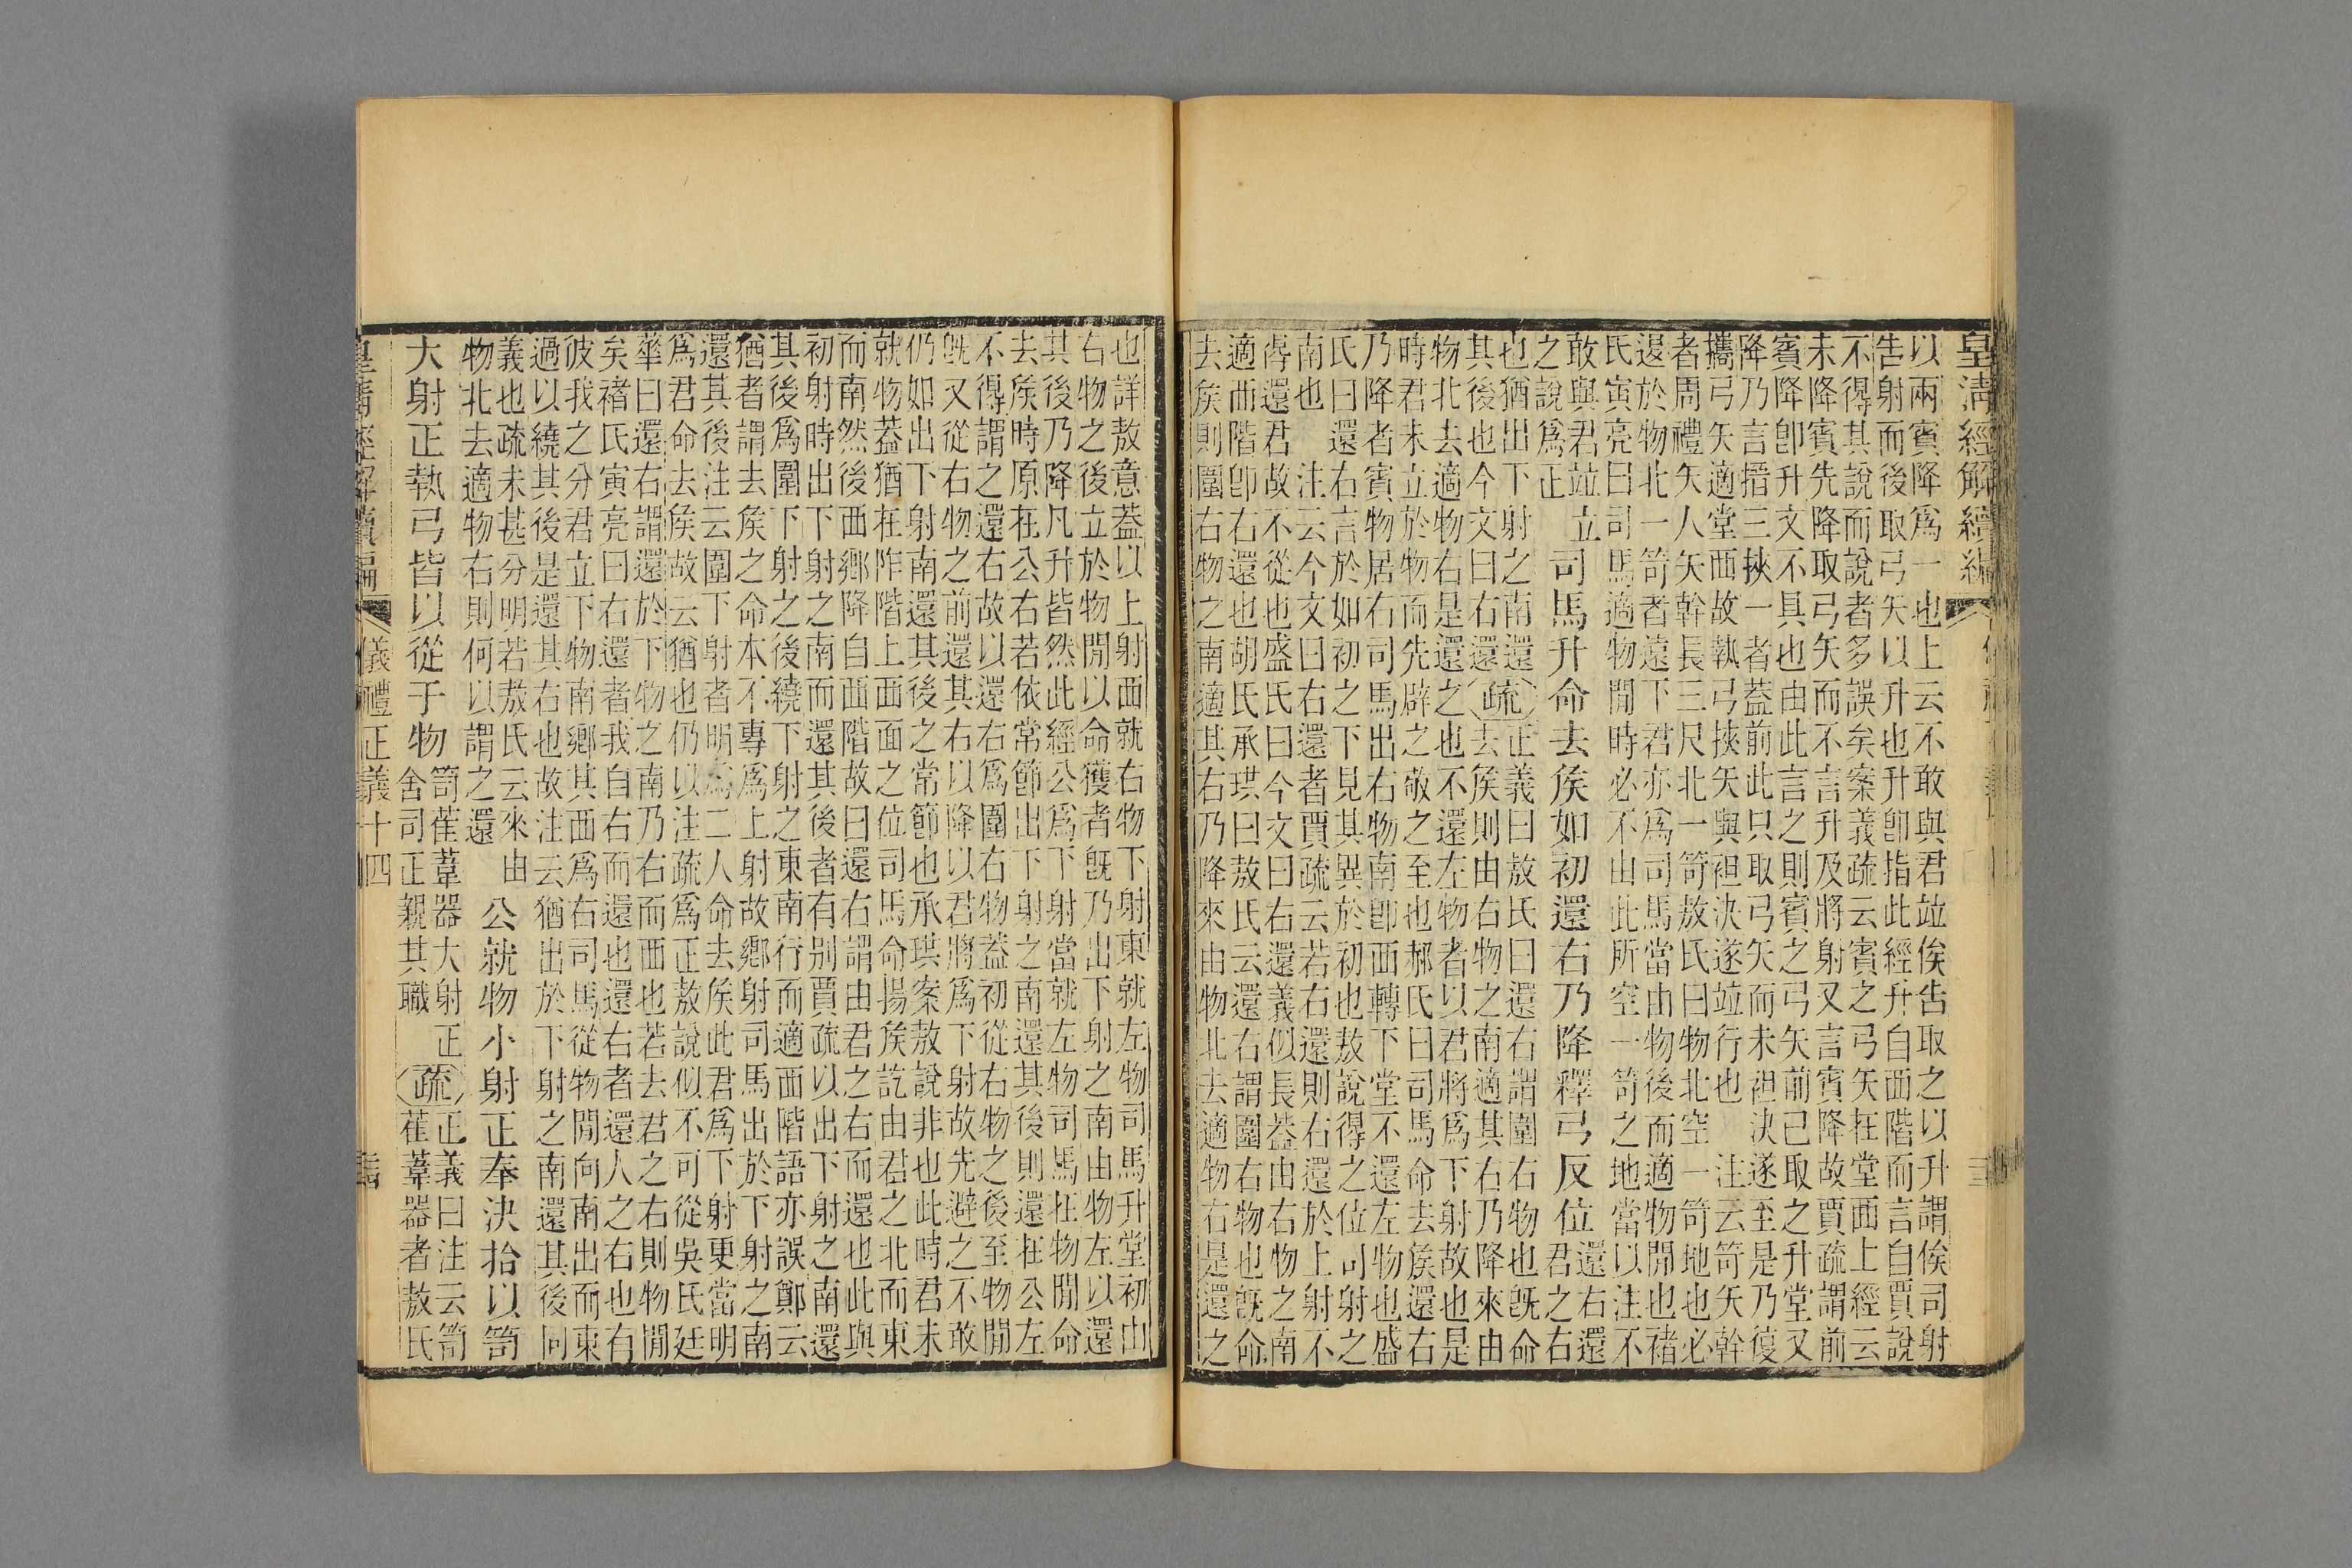 皇清經解續編
以兩賓降爲一也上云不敢與君竝俟告取之以升謂俟司射
告射而後取弓矢以升也升卽指此經升自西階而言自賈說
不得其說而說者多誤矣案義疏云賓之弓矢在堂西上經云
未降賓先降取弓矢而不言升及將射又言賓降故賈疏謂前
賓降卽升文不具也由此言之則賓之弓矢前已取之升堂又
降乃言搢三挾一者蓋前此只取弓矢而未袒決遂至是乃復
攜弓矢適堂西故執弓挾矢與袒決遂竝行也 注云笴矢幹
者周禮矢人矢幹長三尺北一笴敖氏曰物北空一笴地也必
退於物北一笴者遠下君亦爲司馬當由物後而適物閒也褚
氏寅亮曰司馬適物閒時必不由此所空一笴之地當以注不
敢與君竝立
之說爲正
司馬升命去矦如初還右乃降釋弓反位
還右還
君之右
也猶出下射之南還
其後也今文曰右還
疏
正義曰敖氏曰還右謂圍右物也旣命
去矦則由右物之南適其右乃降來由
物北去適物右是還之也不還左物者以君將爲下射故也是
時君未立於物而先辟之敬之至也郝氏曰司馬命去矦還右
乃降者賓物居右司馬出右物南卽西轉下堂不還左物也盛
氏曰還右言於如初之下見其異於初也敖說得之位司射之
南也 注云今文曰右還者賈疏云若右還則右還於上射不
得還君故不從也盛氏曰今文曰右還義似長蓋由右物之南
適西階卽右還也胡氏承珙曰敖氏云還右謂圍右物也旣命
去矦則圍右物之南適其右乃降來由物北去適物右是還之
也詳敖意蓋以上射西就右物下射東就左物司馬升堂初由
右物之後立於物閒以命獲者旣乃出下射之南由物左以還
其後乃降凡升皆然此經公爲下射當就左物司馬在物閒命
去矦時原在公右若依常節出下射之南還其後則還在公左
不得謂之還右故以還右爲圍右物蓋初從右物之後至物閒
旣又從右物之前還其右以降以君將爲下射故先避之不敢
仍如出下射南還其後之常節也承珙案敖說非也此時君未
就物蓋猶在阼階上西面之位司馬命揚矦訖由君之北而東
而南然後西鄉降自西階故曰還右謂由君之右而還也此與
初射時出下射之南而還其後者有别賈疏以出下射之南還
其後爲圍下射之後繞下射之東南行而適西階語亦誤鄭云
猶者謂去矦之命本不專爲上射故鄉射司馬出於下射之南
還其後注云圍下射者明爲二人命去矦此君爲下射更當明
爲君命去矦故云猶也仍以注疏爲正敖說似不可從吳氏廷
華曰還右謂還於下物之南乃右而西也若去君之右則物閒
矣褚氏寅亮曰右還者我自右而還也還右者還人之右也有
彼我之分君立下物南鄉其西爲右司馬從物閒向南出而東
過以繞其後是還其右也故注云猶出於下射之南還其後同
義也疏未甚分明若敖氏云來由
物北去適物右則何以謂之還
公就物小射正奉決拾以笥
大射正執弓皆以從于物
笥萑葦器大射正
舍司正親其職
疏
正義曰注云笥
萑葦器者敖氏
皇清經解續編 儀禮正義十四